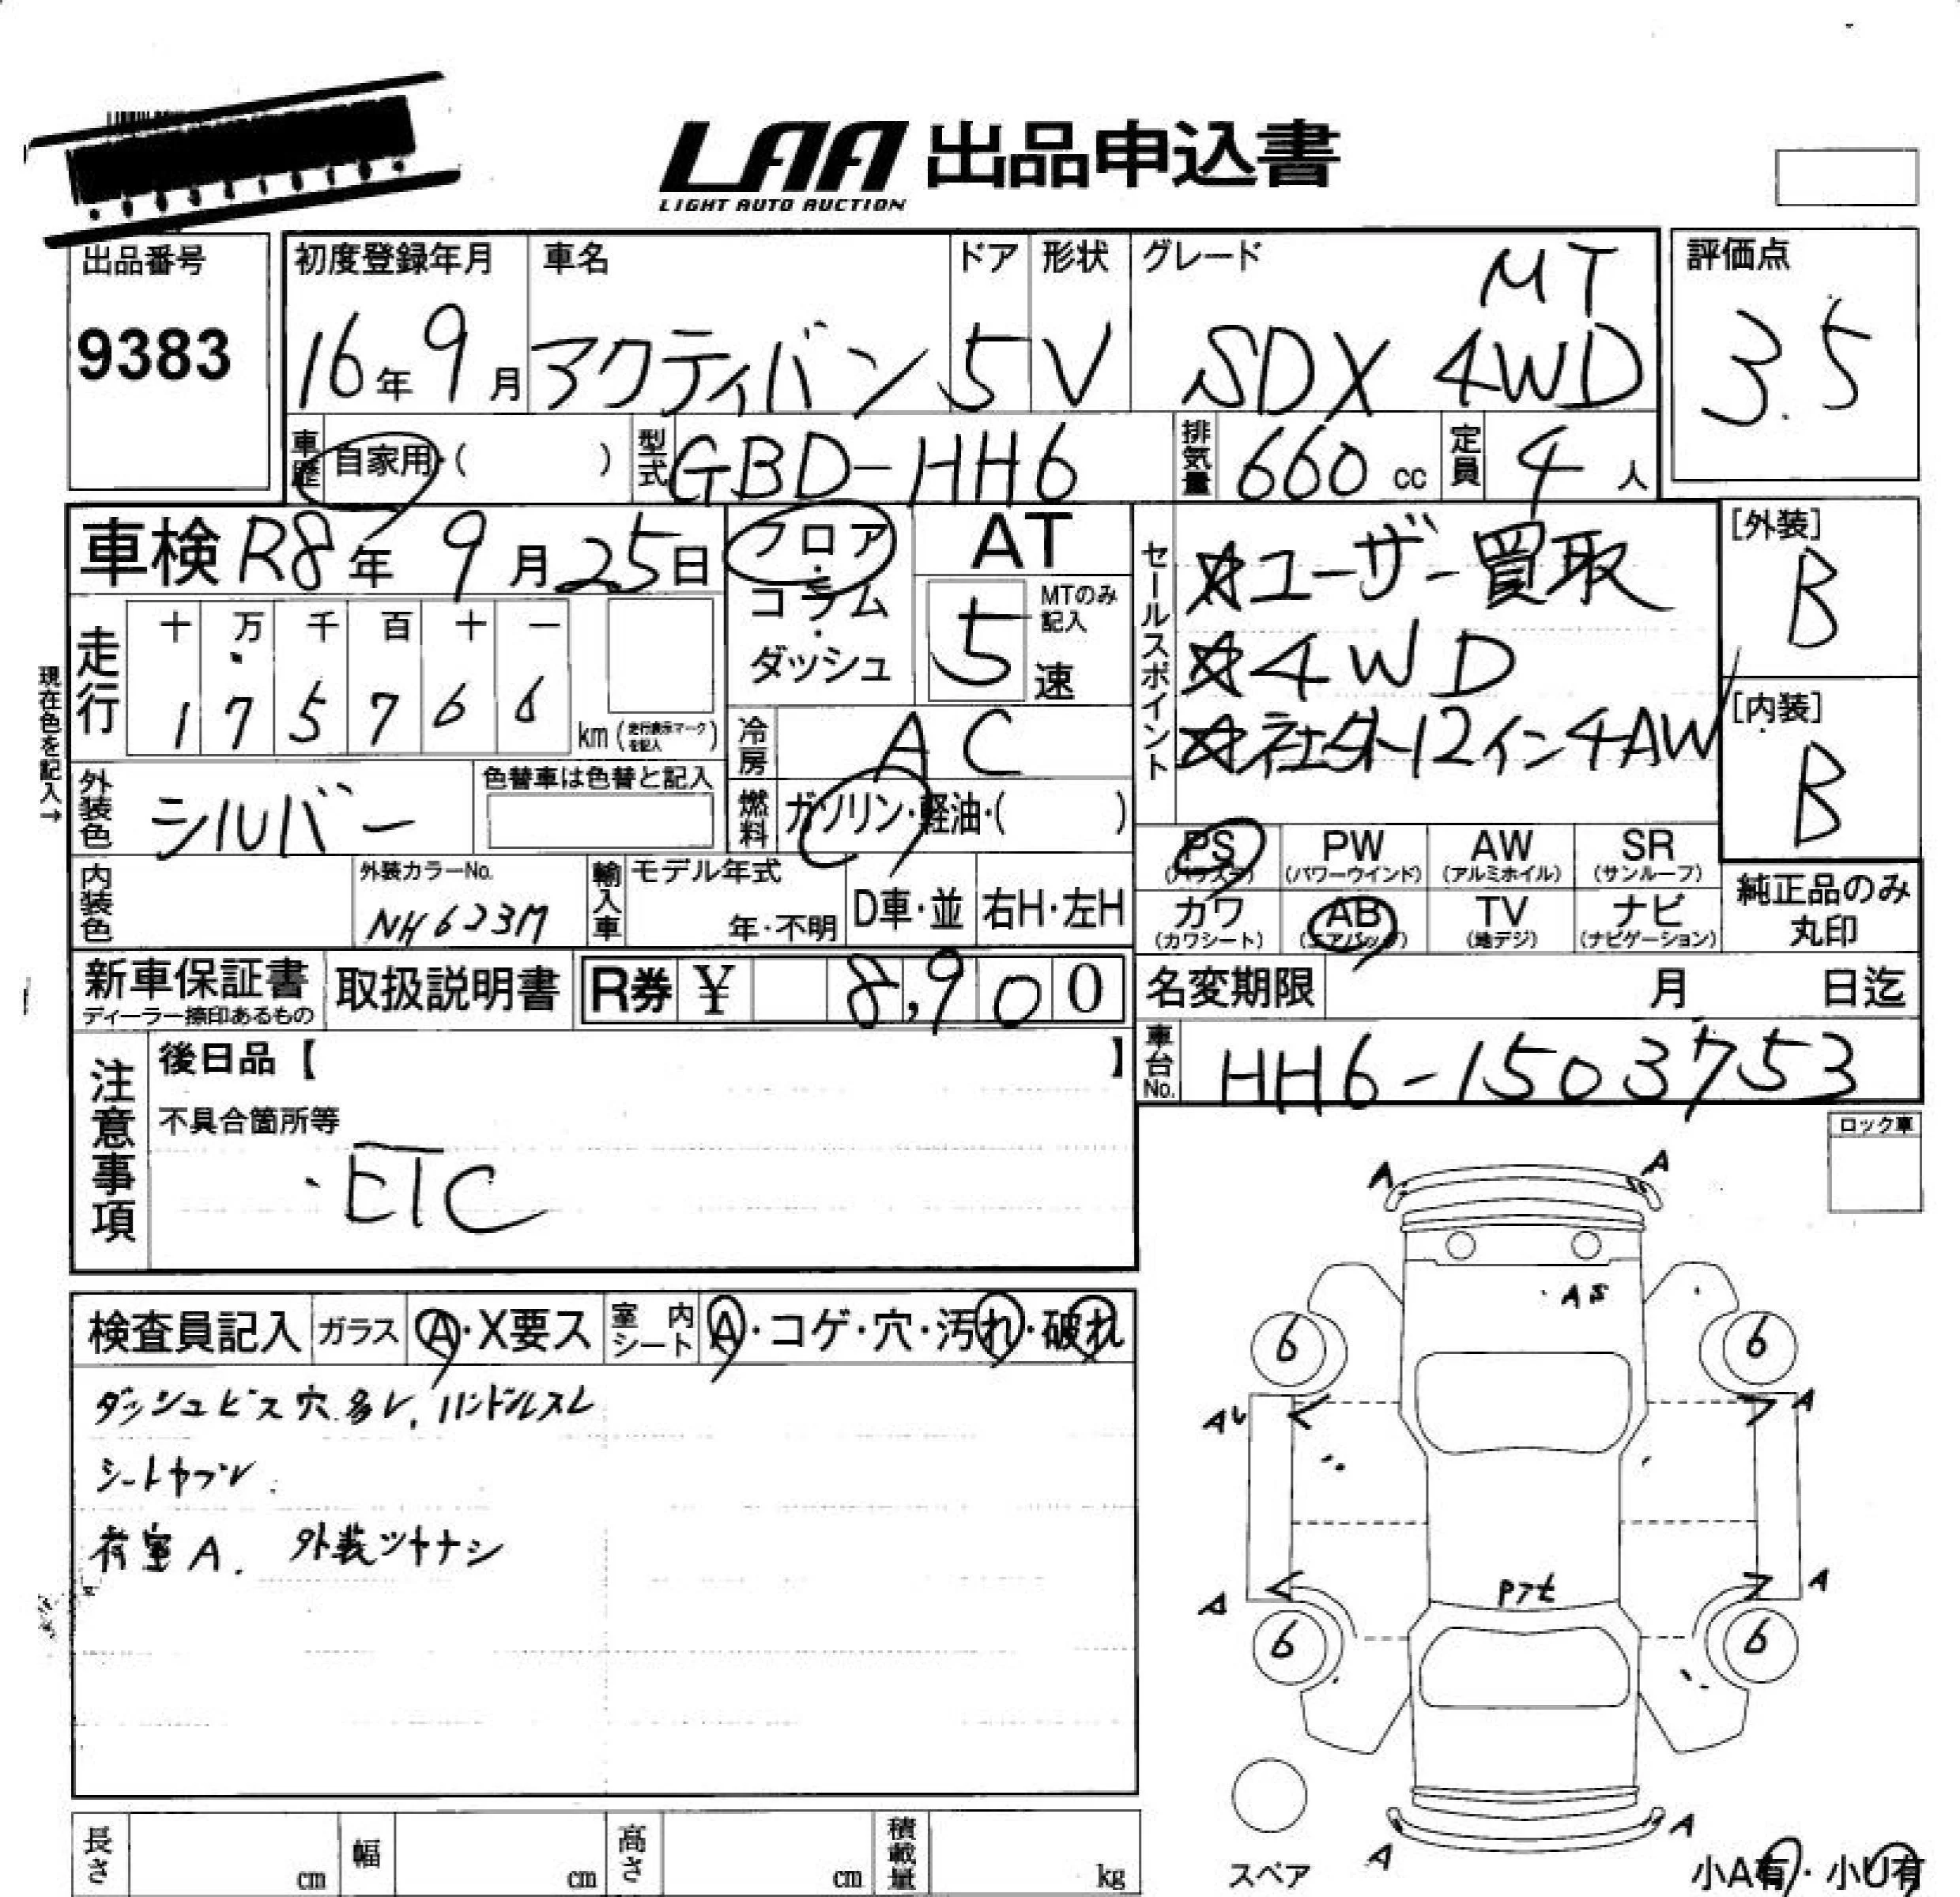 LAA 出品申込書
LIGHT AUTO AUCTION
出品番号
9383
初度登録年月
16年9月
車名
アクティバン
ドア
5
形状
V
グレード
MT
SDX 4WD
評価点
3.5
車歴
自家用・( )
型式
GBD-HH6
排気量
660 cc
定員
4 人
車検 R8年 9月 25日
フロア・コラム・ダッシュ
AT
5
MTのみ記入
速
セールスポイント
☆ユーザー買取
☆4WD
☆社外12イン4AW
[外装]
B
[内装]
B
現在色を記入→
走行
十 万 千 百 十 一
1 7 5 7 6 6
km (走行表示マークを記入)
冷房
AC
外装色
シルバー
色替車は色替と記入
燃料
ガソリン・軽油・( )
PS (パワステ)
PW (パワーウインド)
AW (アルミホイル)
SR (サンルーフ)
カワ (カワシート)
AB (エアバッグ)
TV (地デジ)
ナビ (ナビゲーション)
純正品のみ丸印
内装色
外装カラーNo.
NH623M
輸入車
モデル年式
年・不明
D車・並
右H・左H
新車保証書
ディーラー捺印あるもの
取扱説明書
R券 ¥ 8,900
名変期限 月 日迄
車台No.
HH6-1503753
注意事項
後日品【 】
不具合箇所等
・ETC
ロック車
検査員記入
ガラス
A・X要ス
室内シート
A・コゲ・穴・汚れ・破れ
ダッシュビス穴多レ、ハンドルスレ
シートヤブレ
荷室A. 外装ツヤナシ
A A
・AS
6 6
A A
A A
6 6
A A
スペア
小A有・小U有
長さ cm
幅 cm
高さ cm
積載量 kg